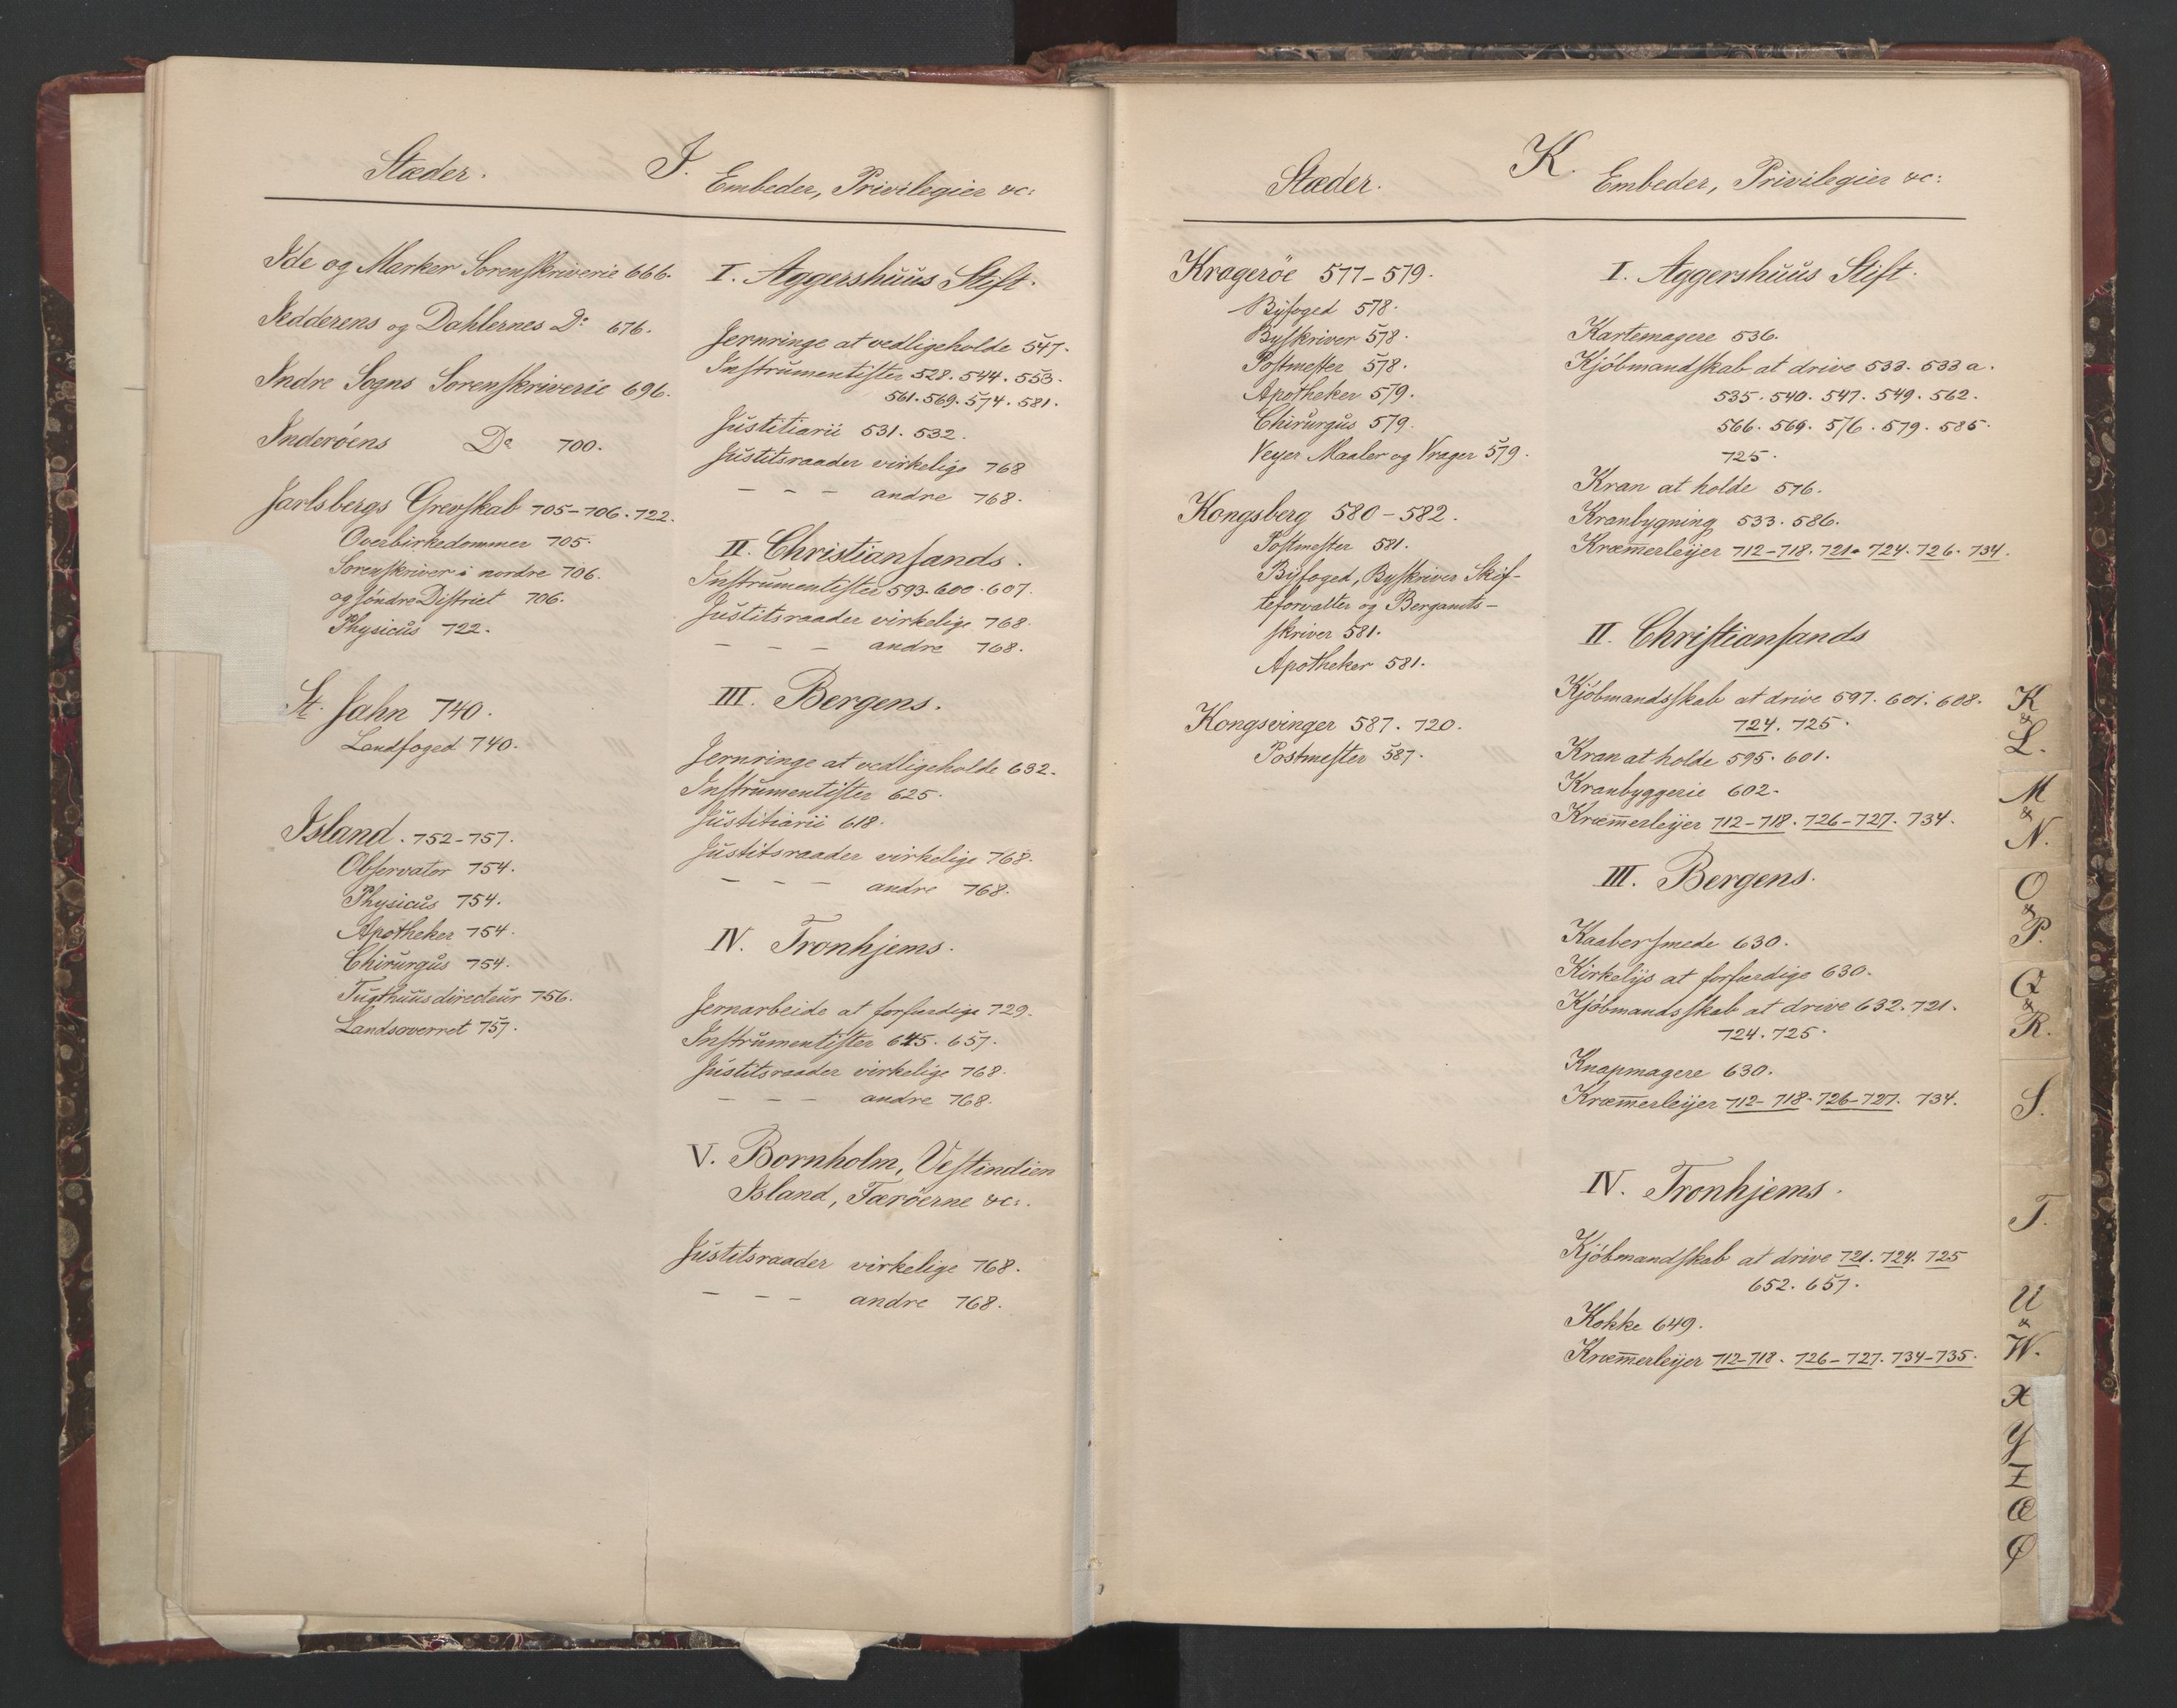 Stæder.
J.
Embeder, Privilegier &c:
Ide og Marker Sorenskriverie 666.
Jedderens og Dahlernes Do 676.
Indre Sogns Sorenskriverie 696.
Inderöens Do 700.
Jarlsbergs Grevskab 705-706. 722.
Overbirkedommer 705.
Sorenskriver i nordre 706.
og söndre District 706.
Physicus 722.
St. Jahn 740.
Landfoged 740.
Island. 752-757.
Observator 754.
Physicus 754.
Apotheker 754.
Chirurgus 754.
Tugthuusdirecteur 756.
Landsoverret 757.
I. Aggershuus Stift.
Jernringe at vedligeholde 547.
Instrumentister 528. 544. 553.
561. 569. 574. 581.
Justitiarii 531. 532.
Justitsraader virkelige 768
- - - andre 768.
II. Christiansands.
Instrumentister 593. 600. 607.
Justitsraader virkelige 768.
- - - andre 768.
III. Bergens.
Jernringe at vedligeholde 632.
Instrumentister 625.
Justitiarii 618.
Justitsraader virkelige 768.
- - - andre 768.
IV. Tronhjems.
Jernarbeide at forfærdige 729.
Instrumentister 645. 657.
Justitsraader virkelige 768.
- - - andre 768.
V. Bornholm, Vestindien
Island, Færöerne &c:.
Justitsraader virkelige 768.
- - - andre 768.
Stæder.
K.
Embeder, Privilegier &c:
Krageröe 577-579.
Byfoged 578.
Byskriver 578.
Postmester 578.
Apotheker 579.
Chirurgus 579.
Veyer Maaler og Vrager 579.
Kongsberg 580-582.
Postmester 581.
Byfoged, Byskriver Skif-
teforvalter og Bergamts-
skriver 581.
Apotheker 581.
Kongsvinger 587. 720.
Postmester 587.
I. Aggershuus Stift.
Kartemagere 536.
Kjöbmandskab at drive 533. 533 a.
535. 540. 547. 549. 562.
566. 569. 576. 579. 585.
725.
Kran at holde 576.
Kranbygning 533. 586.
Kræm̅erleÿer 712-718. 721. 724. 726. 734.
II. Christiansands
Kjöbmandsskab at drive 597. 601. 608.
724. 725.
Kran at holde 595. 601.
Kranbyggerie 602.
Kræm̅erleÿer 712-718. 726-727. 734.
III. Bergens.
Kaabersmede 630.
Kirkelÿs at forfærdige 630.
Kjöbmandsskab at drive 632. 721.
724. 725.
Knapmagere 630.
Kræm̅erleÿer 712-718. 726-727. 734.
IV. Tronhjems.
Kjöbmandskab at drive 721. 724. 725
652. 657.
Kokke 649.
Kræm̅erleÿer 712-718. 726-727. 734-735.
K
&
L.
M
&
N.
O
&
P.
Q
&
R.
S.
T.
U
&
W.
X
Y
Z
Æ
Ø